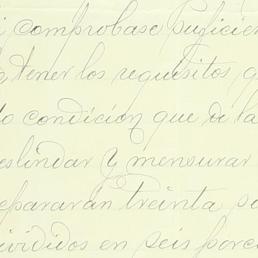 i comprobase suficien
tener los requisitos q
do condición que de la
eslindar y mensurar
epararán treinta so
ivididos en seis porci